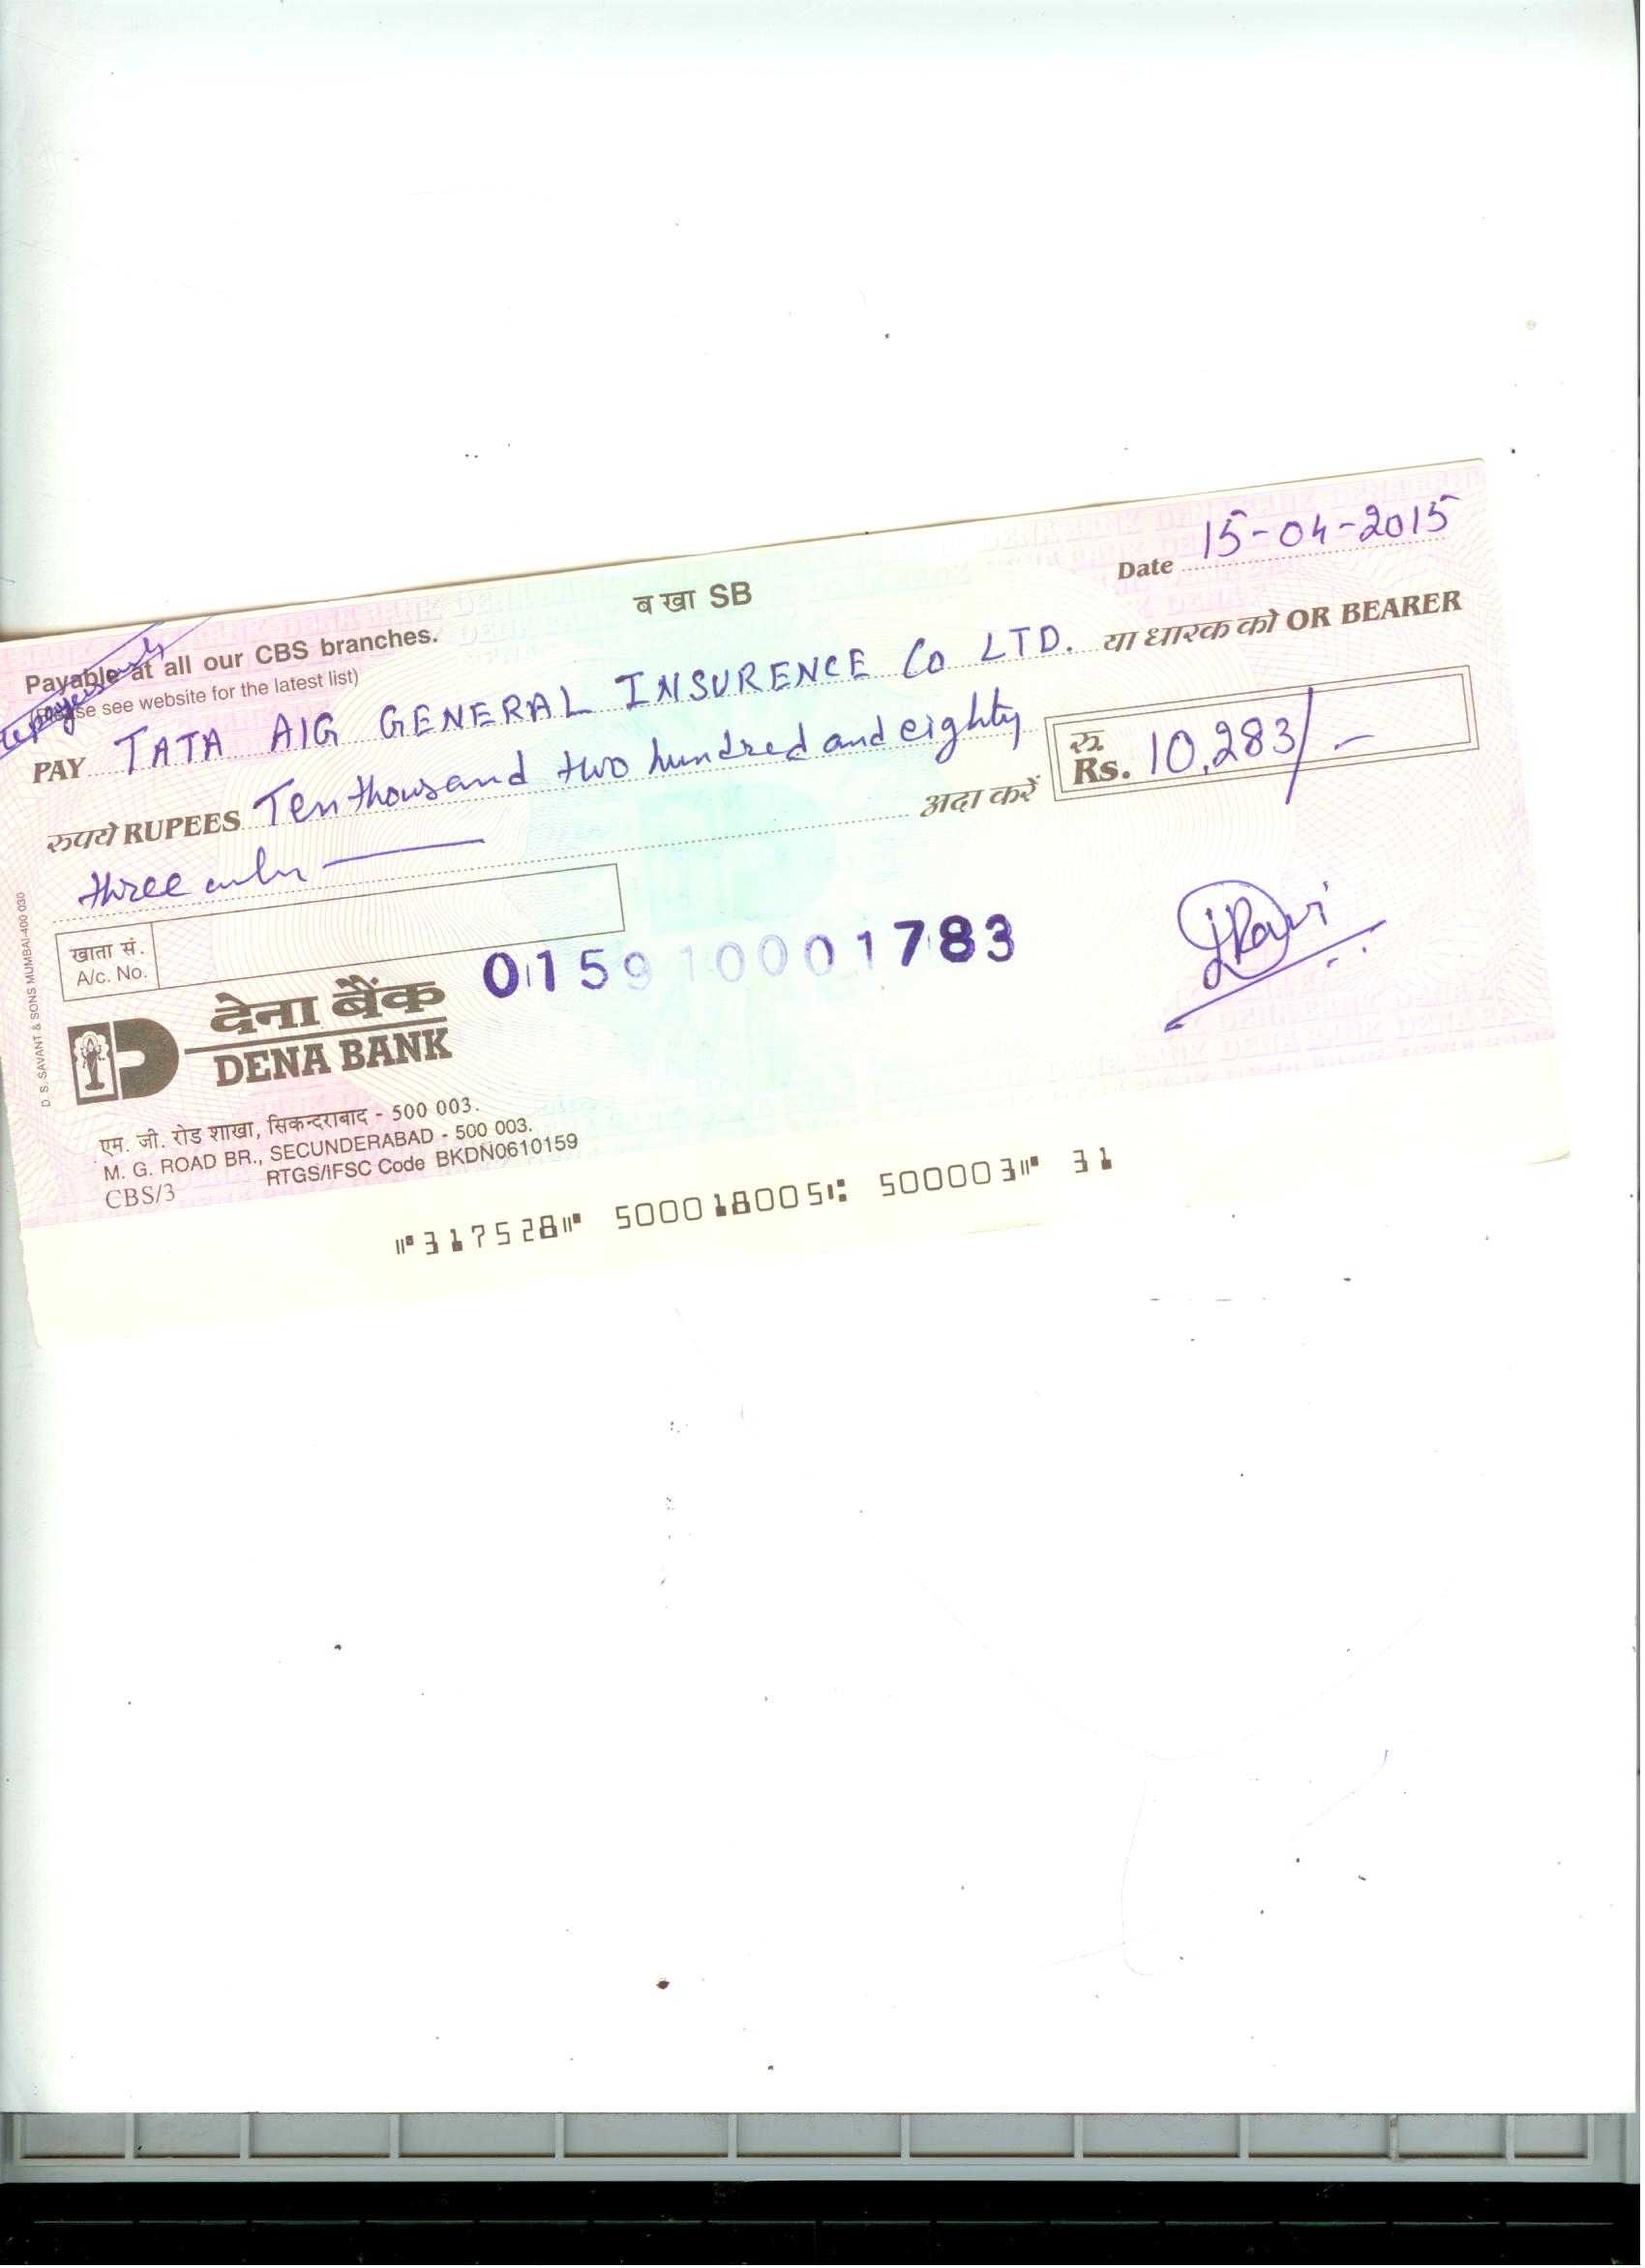 Date 15-04-2015
ब खा SB
Payable at all our CBS branches.
(Please see website for the latest list)
payee only
PAY TATA AIG GENERAL INSURENCE Co LTD. या धारक को OR BEARER
रुपये RUPEES Ten thousand two hundred and eighty
three only अदा करें
रु.
Rs. 10,283/-
खाता सं.
A/c. No.
015910001783
JRavi
देना बैंक
DENA BANK
एम. जी. रोड शाखा, सिकन्दराबाद - 500 003.
M. G. ROAD BR., SECUNDERABAD - 500 003.
CBS/3 RTGS/IFSC Code BKDN0610159
D. S. SAVANT & SONS MUMBAI-400 030
⑈317528⑈ 500018005⑆ 500003⑈ 31